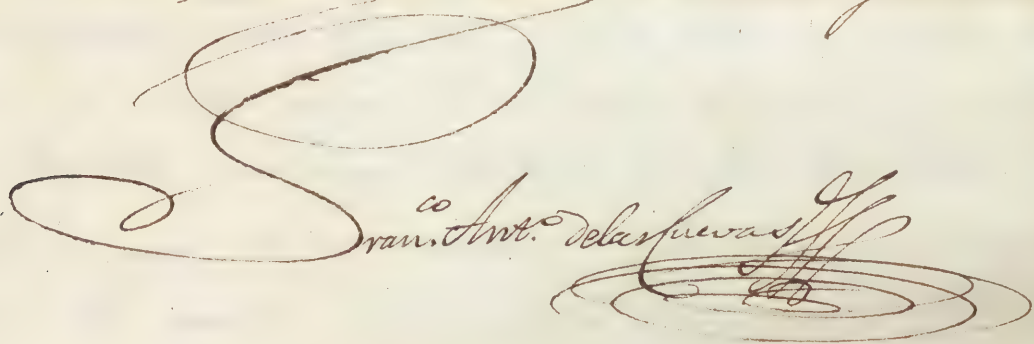 Fran.co Ant.o delas Cuevas